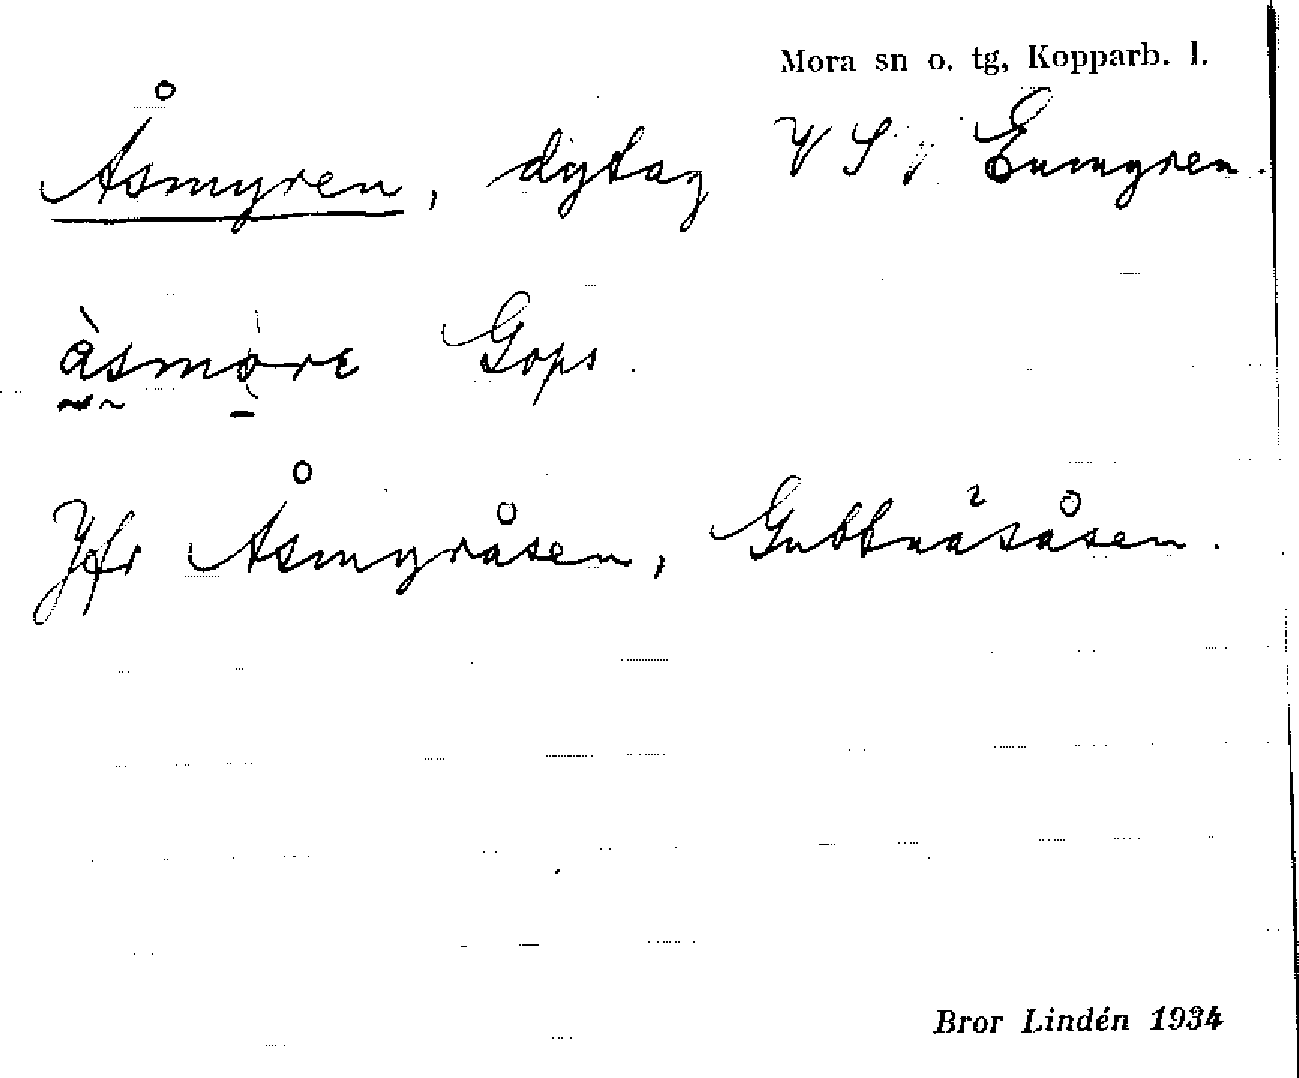 Mora sn o. tg, Kopparb. l.
Åsmyren, dytag V S i Enmyren.
àsmòre Gops.
Jfr Åsmyråsen, Gubbnäsåsen.
Bror Lindén 1934